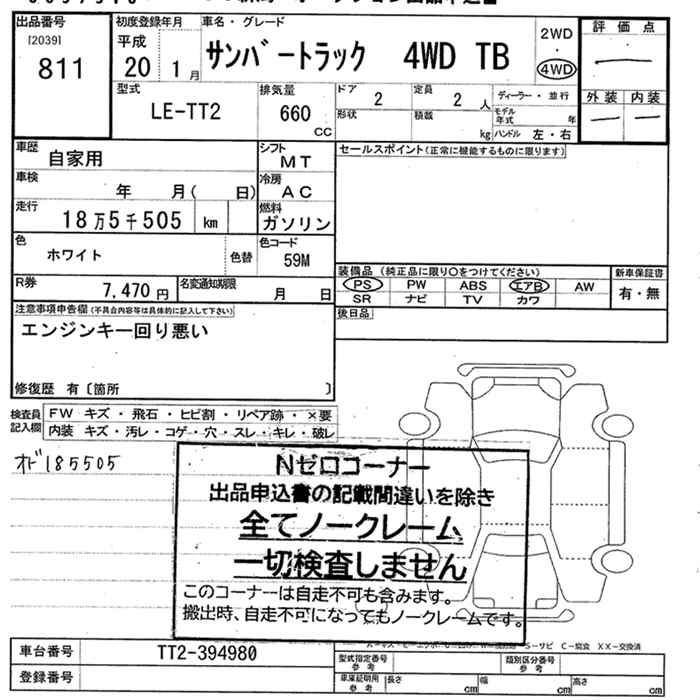 出品番号
[2039]
811
初度登録年月
平成
20年 1月
車名・グレード
サンバートラック 4WD TB
2WD
・
4WD
評価点
外装 内装
型式
LE-TT2
排気量
660
CC
ドア
2
定員
2 人
形状
積載
kg
ディーラー・並行
モデル年式 年
ハンドル 左・右
車歴
自家用
シフト
MT
車検
年 月( 日)
冷房
AC
走行
18万5千505 km
燃料
ガソリン
色
ホワイト
色替
色コード
59M
R券
7,470円
名変通知期限
月 日
セールスポイント(正常に機能するものに限ります)
装備品(純正品に限り〇をつけてください)
PS PW ABS エアB AW
SR ナビ TV カワ
新車保証書
有・無
後日品
注意事項申告欄(不具合内容等は具体的に記入して下さい)
エンジンキー回り悪い
修復歴 有〔箇所 〕
検査員
記入欄
FW キズ・飛石・ヒビ割・リペア跡・×要
内装 キズ・汚レ・コゲ・穴・スレ・キレ・破レ
オド185505
Nゼロコーナー
出品申込書の記載間違いを除き
全てノークレーム
一切検査しません
このコーナーは自走不可も含みます。
搬出時、自走不可になってもノークレームです。
S-サビ C-腐食 XX-交換済
車台番号
TT2-394980
登録番号
型式指定番号
参考
類別区分番号
参考
車庫証明用
参考
長さ cm
幅 cm
高さ cm